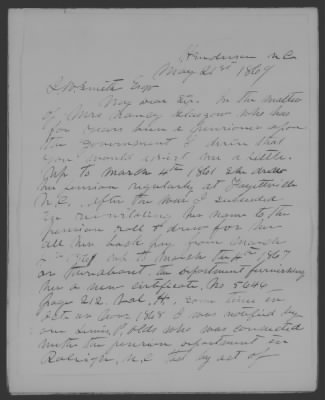 Henderson N.C.
May 21st 1869
Esqr
My dear Sir. In the matter
of Mrs Nancy Glasgow who has
for years been a pensioner upon
the government I desire that
you would assist me a little.
Up to March 4th 1861 She drew
her pension regularly at Fayetteville
N.C. After the war I succeeded
in reinstating her name to the
pension roll & drew for her
all her back pay from March
4th 1861 up to March the 4th 1867
or thereabout. the department furnishing
her a new certificate, No 5644
page 212. Vol. A. some time in
Oct. or Nov 1868 I was notified by
one P. Olds who was connected
with the pension department in
Raleigh, N.C. that by act of